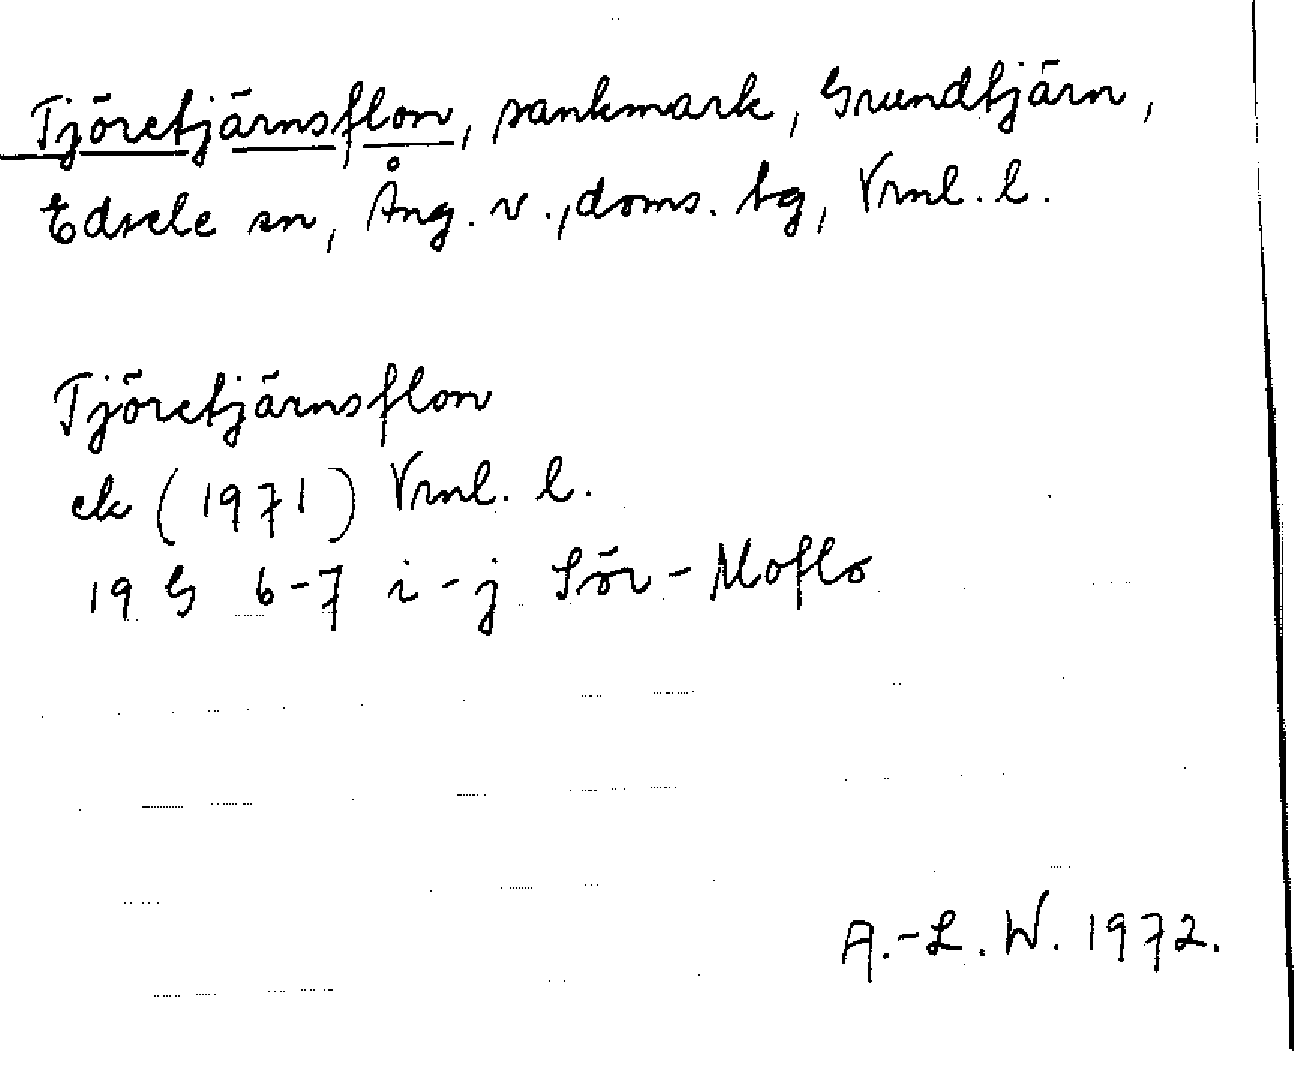 Tjöretjärnsflon, sankmark, Grundtjärn,
Edsele sn, Ång. v., doms. tg, Vrnl. l.
Tjöretjärnsflon
ek (1971) Vrnl. l.
19 G 6-7 i-j Sör-Moflo
A.-L. W. 1972.